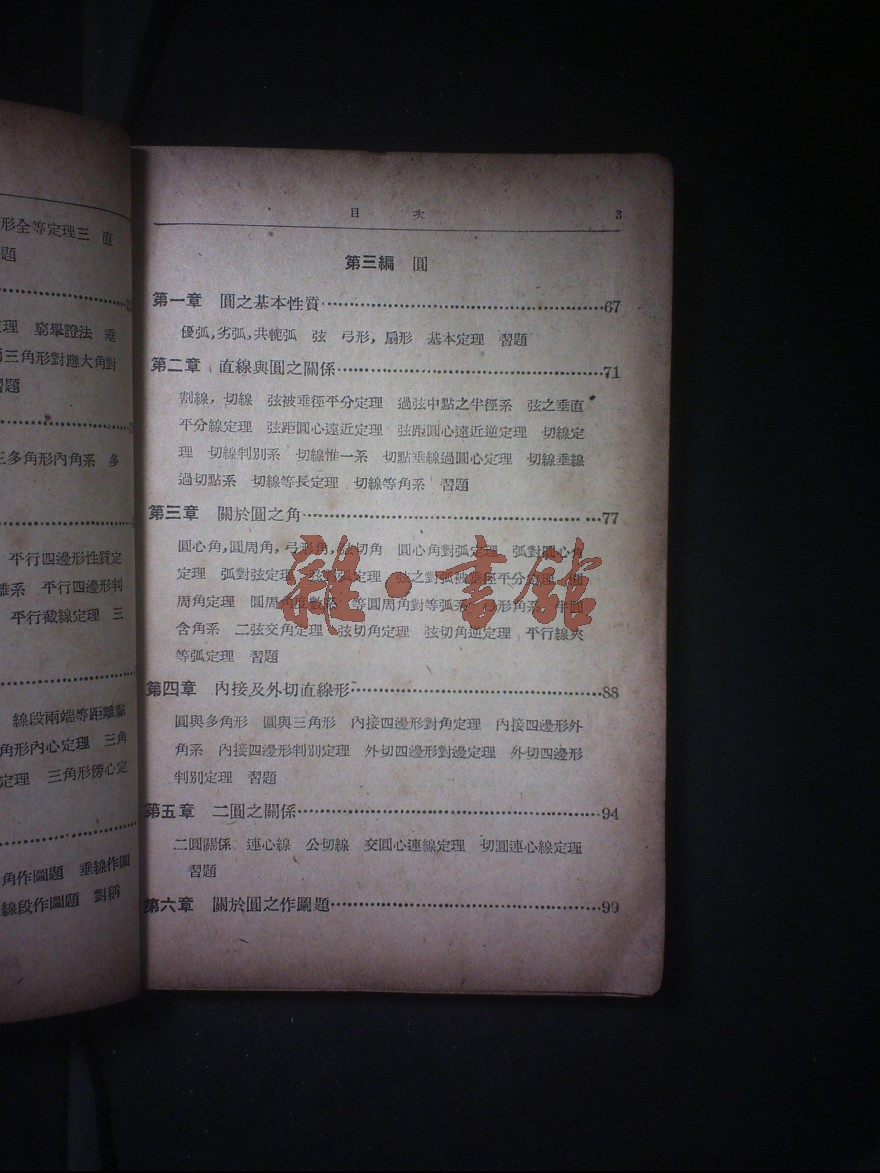 形全等定理三 直
題
理 窮舉證法 垂
三角形對應大角對
習題
三多角形內角系 多
平行四邊形性質定
離系 平行四邊形判
平行截線定理 三
線段兩端等距離點
角形內心定理 三角
定理 三角形傍心定
角作圖題 垂線作圖
線段作圖題 對稱
目 次 3
第三編 圓
第一章 圓之基本性質 67
優弧,劣弧,共軛弧 弦 弓形,扇形 基本定理 習題
第二章 直線與圓之關係 71
割線,切線 弦被垂徑平分定理 過弦中點之半徑系 弦之垂直
平分線定理 弦距圓心遠近定理 弦距圓心遠近逆定理 切線定
理 切線判別系 切線惟一系 切點垂線過圓心定理 切線垂線
過切點系 切線等長定理 切線等角系 習題
第三章 關於圓之角 77
圓心角,圓周角,弓形角,弦切角 圓心角對弧定理 弧對圓心角
定理 弧對弦定理 弦之對弧被垂徑平分定理
周角定理 圓周角度數系 等圓周角對等弧系 弓形角系 半圓
含角系 二弦交角定理 弦切角定理 弦切角逆定理 平行線夾
等弧定理 習題
第四章 內接及外切直線形 88
圓與多角形 圓與三角形 內接四邊形對角定理 內接四邊形外
角系 內接四邊形判別定理 外切四邊形對邊定理 外切四邊形
判別定理 習題
第五章 二圓之關係 94
二圓關係 連心線 公切線 交圓心連線定理 切圓連心線定理
習題
第六章 關於圓之作圖題 99
雜·書館